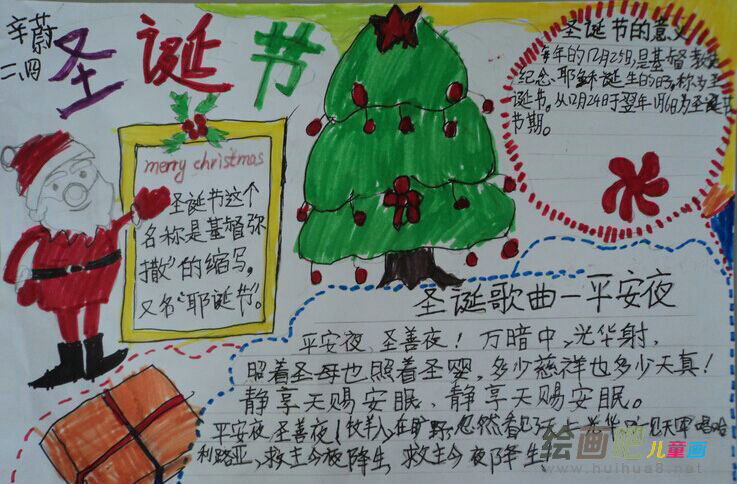 辛蔚
二、四
圣诞节
merry christmas
圣诞节这个
名称是基督弥
撒”的缩写,
又名“耶诞节”。
圣诞节的意义
年的12月25日,是基督教
纪念、耶稣诞生的日,称为圣
诞节。从12月24日于翌年1月6日为圣诞节
节期。
圣诞歌曲—平安夜
平安夜、圣善夜!万暗中,光华射,
照着圣母也照着圣婴,多少慈祥也多少天真!
静享天赐安眠、静享天赐安眠。
平安夜,圣善夜!牧羊人,在旷野,忽然看
利路亚,救主今夜降生 救主今夜降生
绘画吧 儿童画
www.huihua8.net